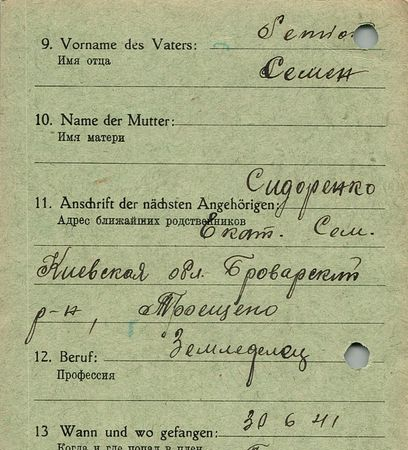 9. Vorname des Vaters:
Имя отца
Семен
10. Name der Mutter:
Имя матери
Сидоренко
11. Anschrift der nächsten Angehörigen:
Адрес ближайших родственников
Екат. Сем.
Киевская обл. Броварский
р-н, Троещено
12. Beruf: Земледелец
Профессия
30 6 41
13 Wann und wo gefangen:
Когда и где попал в плен